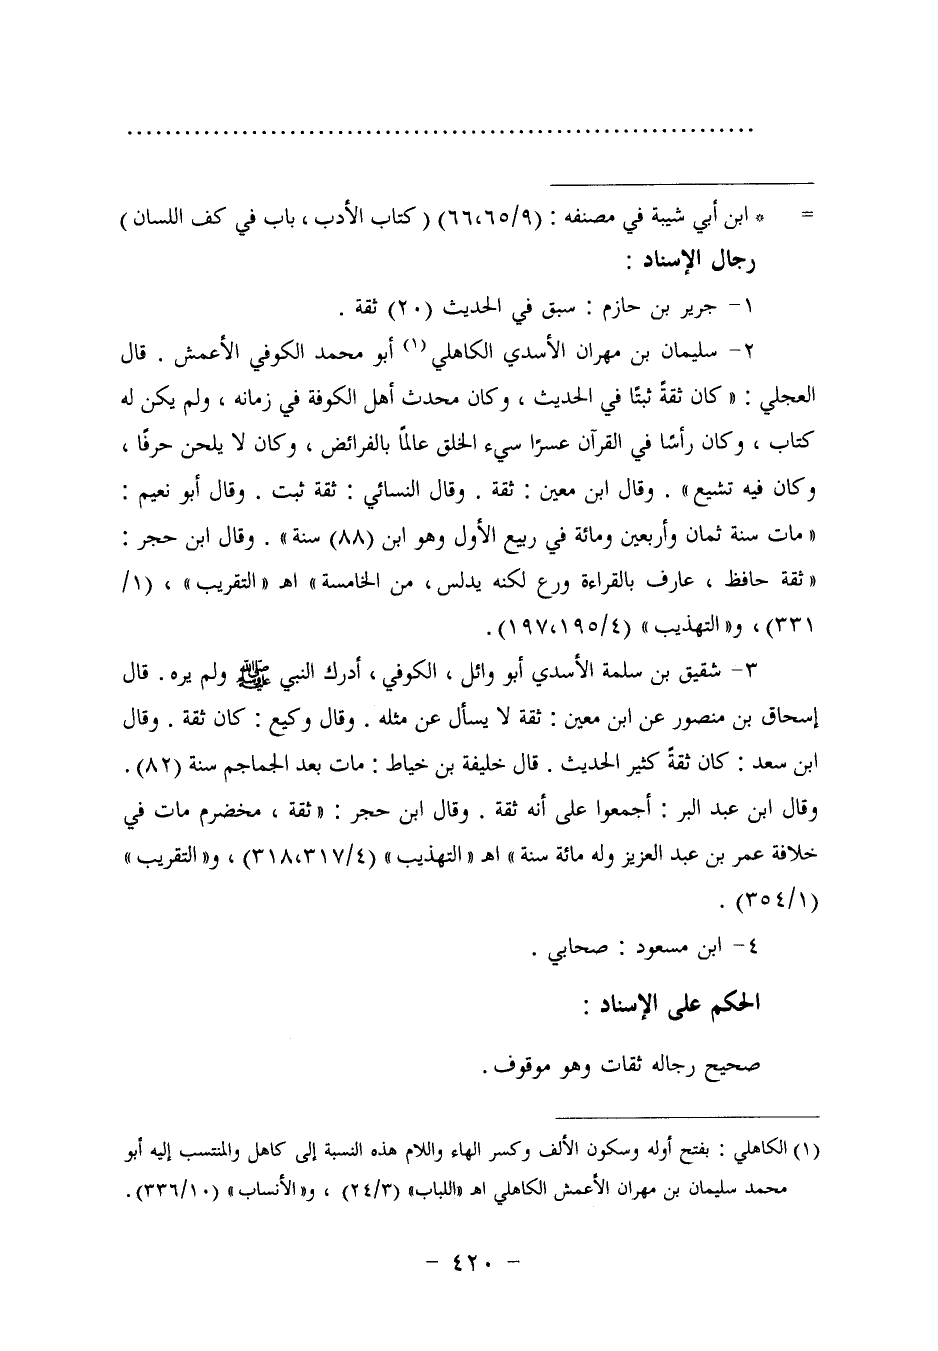 ................................................................
= * ابن أبي شيبة في مصنفه : (٦٦،٦٥/٩) ( كتاب الأدب ، باب في كف اللسان )
رجال الإسناد :
١- جرير بن حازم : سبق في الحديث (٢٠) ثقة .
٢- سليمان بن مهران الأسدي الكاهلي(١) أبو محمد الكوفي الأعمش . قال
العجلي : « كان ثقةً ثبتًا في الحديث ، وكان محدث أهل الكوفة في زمانه ، ولم يكن له
كتاب ، وكان رأسًا في القرآن عسرًا سيء الخلق عالمًا بالفرائض ، وكان لا يلحن حرفًا ،
وكان فيه تشيع» . وقال ابن معين : ثقة . وقال النسائي : ثقة ثبت . وقال أبو نعيم :
«مات سنة ثمان وأربعين ومائة في ربيع الأول وهو ابن (٨٨) سنة» . وقال ابن حجر :
«ثقة حافظ ، عارف بالقراءة ورع لكنه يدلس، من الخامسة» اهـ «التقريب» ، (١/
٣٣١)، و«التهذيب» (١٩٧،١٩٥/٤).
٣- شقيق بن سلمة الأسدي أبو وائل ، الكوفي ، أدرك النبي ﷺ ولم يره. قال
إسحاق بن منصور عن ابن معين : ثقة لا يسأل عن مثله . وقال وكيع : كان ثقة . وقال
ابن سعد : كان ثقةً كثير الحديث . قال خليفة بن خياط : مات بعد الجماجم سنة (٨٢).
وقال ابن عبد البر : أجمعوا على أنه ثقة . وقال ابن حجر : «ثقة ، مخضرم مات في
خلافة عمر بن عبد العزيز وله مائة سنة» اهـ «التهذيب» (٣١٨،٣١٧/٤) ، و«التقريب»
(٣٥٤/١) .
٤- ابن مسعود : صحابي .
الحكم على الإسناد :
صحيح رجاله ثقات وهو موقوف .
(١) الكاهلي : بفتح أوله وسكون الألف وكسر الهاء واللام هذه النسبة إلى كاهل والمنتسب إليه أبو
محمد سليمان بن مهران الأعمش الكاهلي اهـ «اللباب» (٢٤/٣) ، و«الأنساب» (٣٣٦/١٠).
- ٤٢٠ -